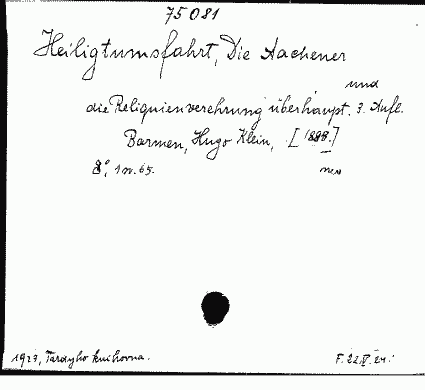 75081
Heiligtumsfahrt, Die Aachener
und
die Reliquienverehrung überhaupt. 3. Aufl.
Barmen, Hugo Klein, [1888.]
8°, 1 w. 65.
1923, Tardyho knihovna. F. 22.V.24.